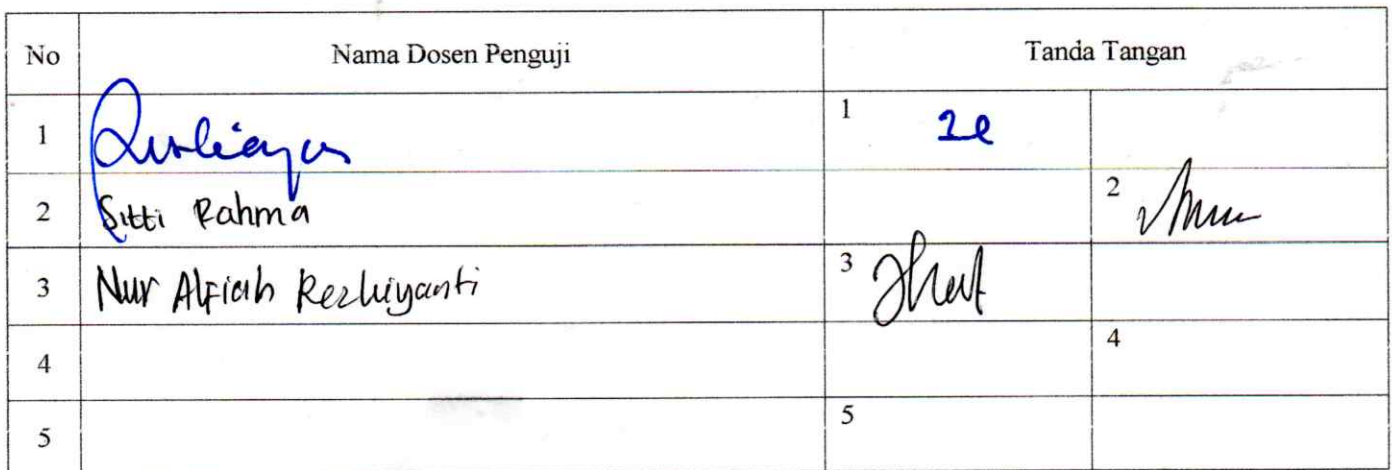 No Nama Dosen Penguji Tanda Tangan
1 1
2 Sitti Rahma 2
3 Nur Alfiah Rezkiyanti 3
4 4
5 5